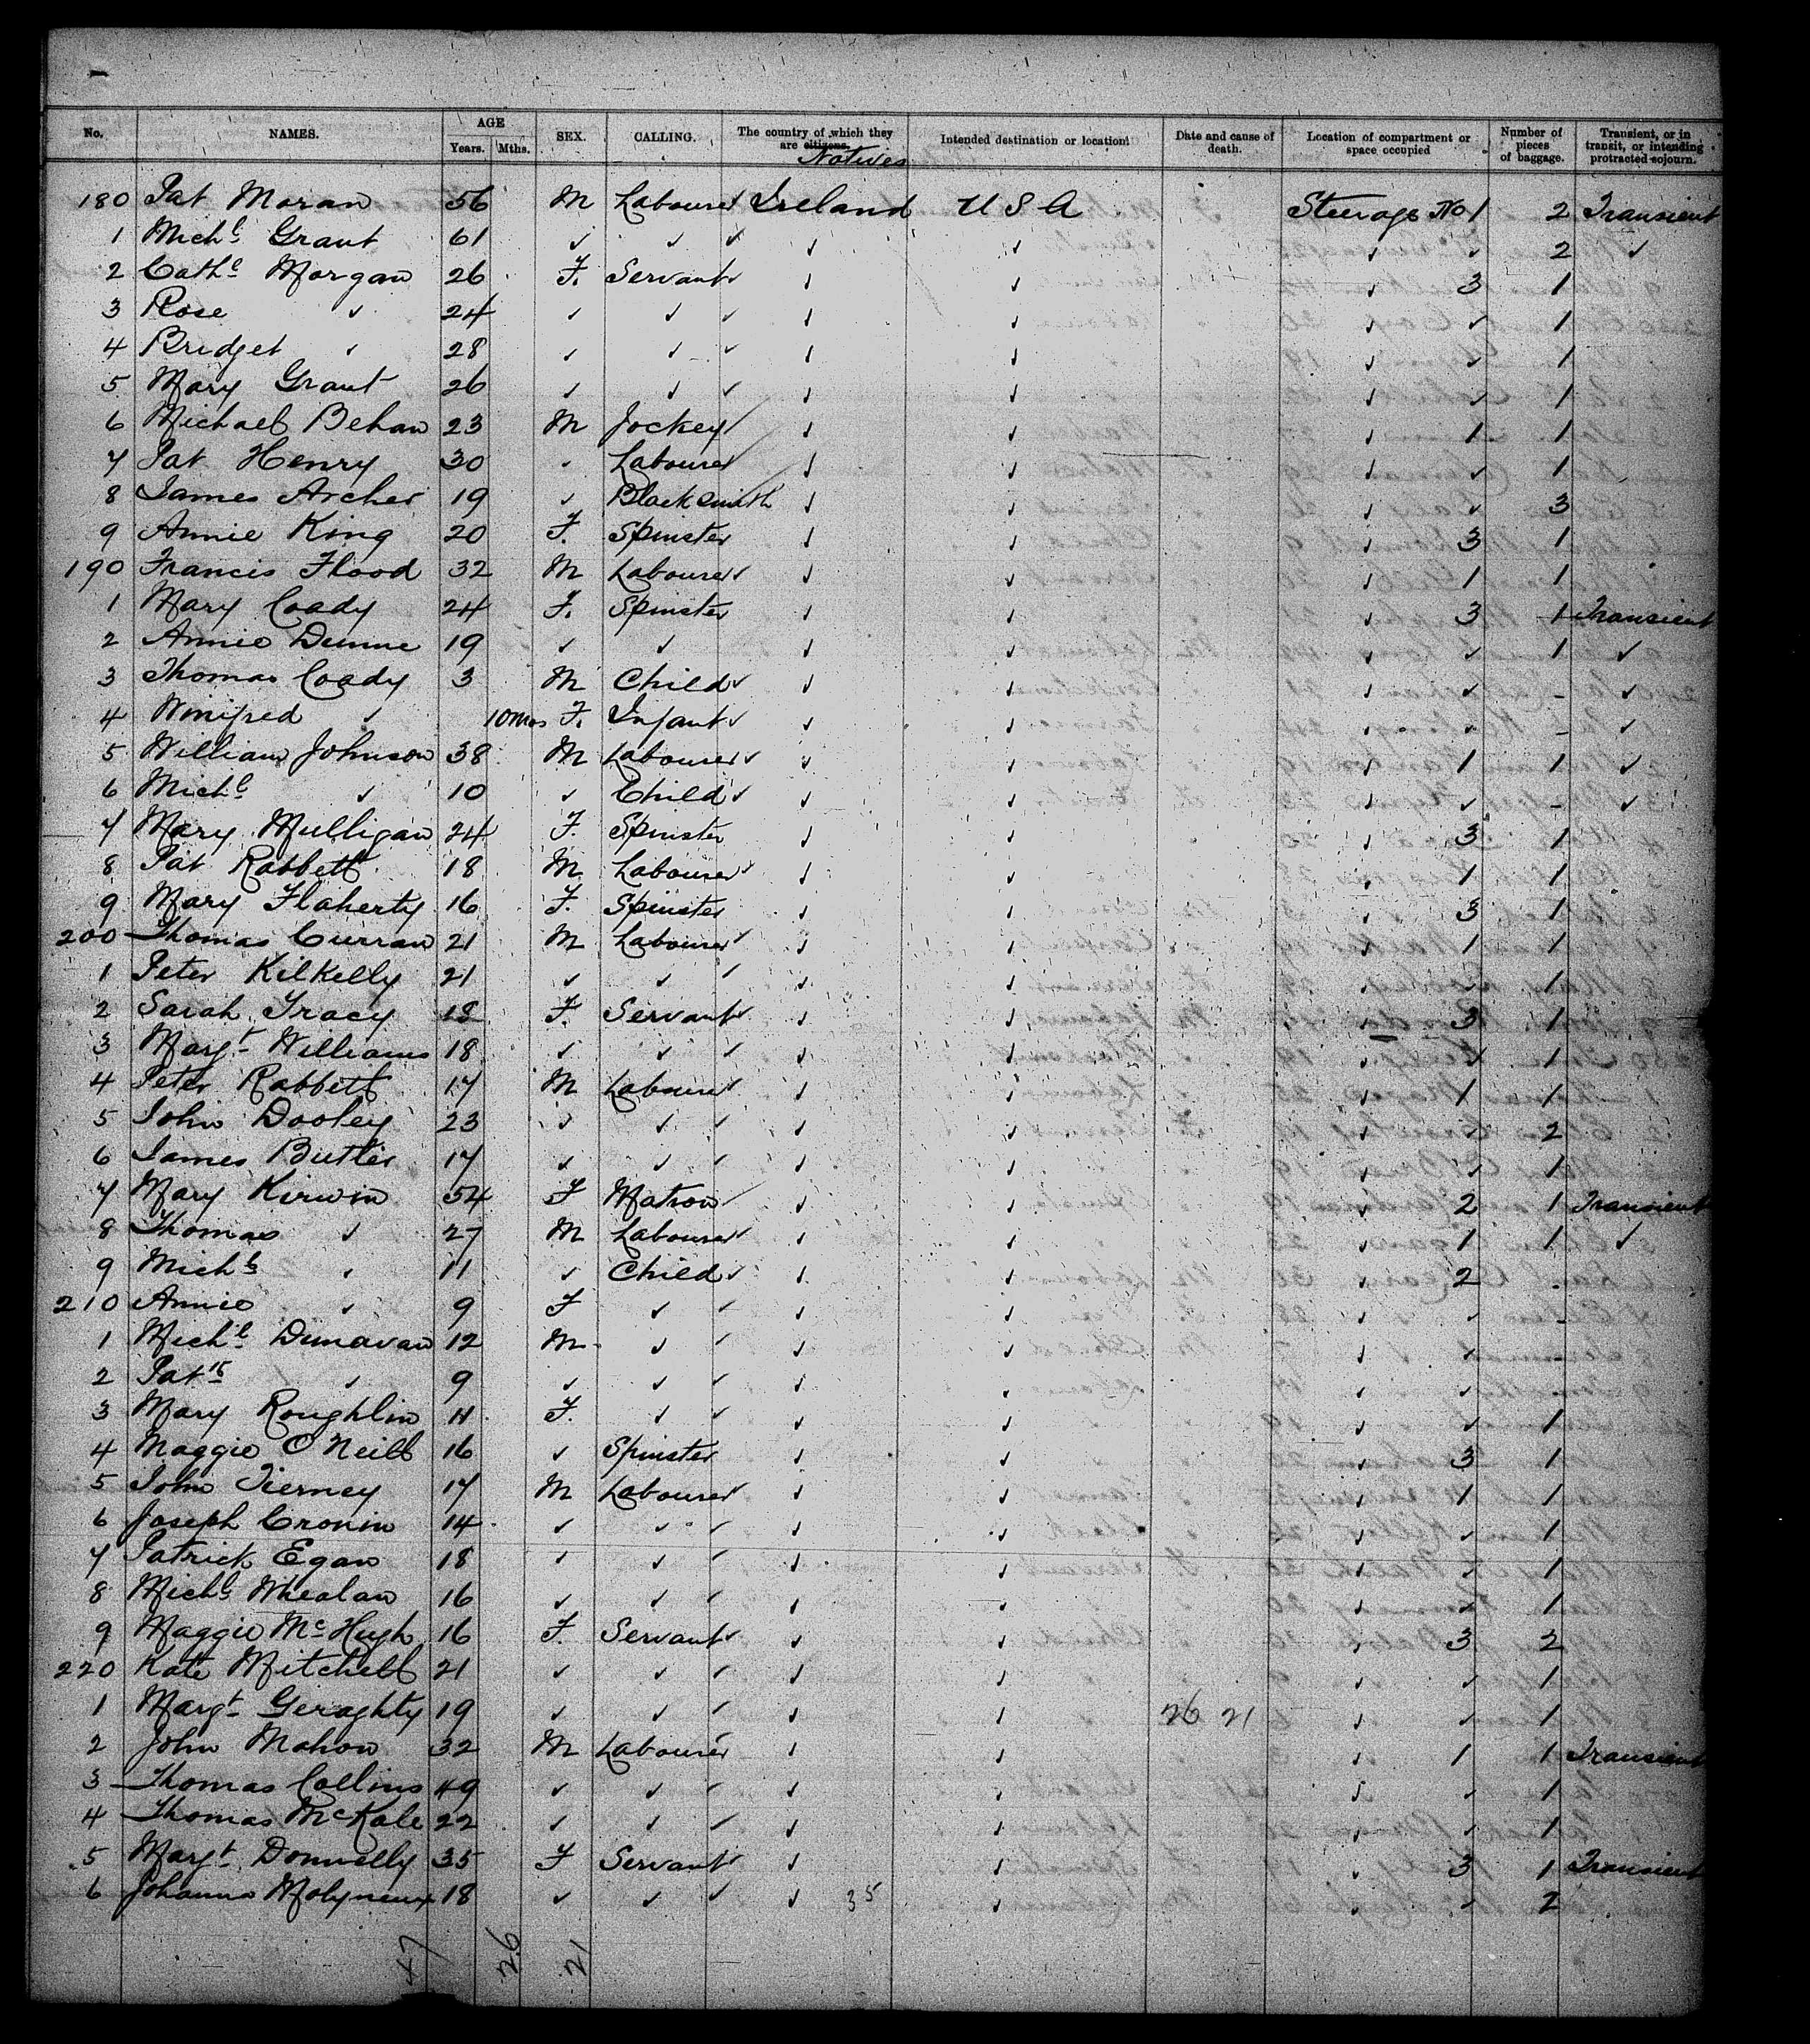 No. NAMES. AGE Years. Mths. SEX. CALLING. The country of which they are citizens. Natives Intended destination or location. Date and cause of death. Location of compartment or space occupied Number of pieces of baggage. Transient, or in transit, or intending protracted sojourn.
180 Pat Moran 56 M Labourer Ireland U S A Steerage No 1 2 Transient
1 Mich^l Grant 61 ✓ ✓ ✓ ✓ ✓ ✓ ✓ 2 ✓
2 Cath^e Morgan 26 F. Servant ✓ ✓ ✓ ✓ 3 1
3 Rose ✓ 24 ✓ ✓ ✓ ✓ ✓ ✓ ✓ 1
4 Bridget ✓ 28 ✓ ✓ ✓ ✓ ✓ ✓ ✓ 1
5 Mary Grant 26 ✓ ✓ ✓ ✓ ✓ ✓ ✓ 1
6 Michael Behan 23 M Jockey ✓ ✓ ✓ 1 1
7 Pat Henry 30 ✓ Labourer ✓ ✓ ✓ ✓ 1
8 James Archer 19 ✓ Blacksmith ✓ ✓ ✓ ✓ 3
9 Annie King 20 F. Spinster ✓ ✓ ✓ 3 1
190 Francis Flood 32 M Labourer ✓ ✓ ✓ ✓ 1 1
1 Mary Coady 24 F. Spinster ✓ ✓ ✓ 3 1 Transient
2 Annie Dunne 19 ✓ ✓ ✓ ✓ ✓ ✓ 1 ✓
3 Thomas Coady 3 M Child ✓ ✓ ✓ ✓ ✓ - ✓
4 Winifred ✓ 10 mos F. Infant ✓ ✓ ✓ ✓ ✓ - ✓
5 William Johnson 38 M Labourer ✓ ✓ ✓ ✓ 1 1 ✓
6 Mich^l ✓ 10 ✓ Child ✓ ✓ ✓ ✓ ✓ - ✓
7 Mary Mulligan 24 F. Spinster ✓ ✓ ✓ 3 1
8 Pat Rabbett 18 M Labourer ✓ ✓ ✓ ✓ 1 1
9 Mary Flaherty 16 F. Spinster ✓ ✓ ✓ 3 1
200 Thomas Curran 21 M Labourer ✓ ✓ ✓ ✓ 1 1
1 Peter Kilkelly 21 ✓ ✓ ✓ ✓ ✓ ✓ ✓ 1
2 Sarah Tracy 18 F. Servant ✓ ✓ ✓ ✓ 3 1
3 Marg^t Williams 18 ✓ ✓ ✓ ✓ ✓ ✓ ✓ 1
4 Peter Rabbett 17 M Labourer ✓ ✓ ✓ ✓ 1 1
5 John Dooley 23 ✓ ✓ ✓ ✓ ✓ ✓ ✓ 2
6 James Butler 17 ✓ ✓ ✓ ✓ ✓ ✓ ✓ 1
7 Mary Kirwin 54 F Matron ✓ ✓ ✓ ✓ 2 1 Transient
8 Thomas ✓ 27 M Labourer ✓ ✓ ✓ ✓ 1 1 ✓
9 Mich^l ✓ 11 ✓ Child ✓ ✓ ✓ ✓ 2 -
210 Annie ✓ 9 F ✓ ✓ ✓ ✓ ✓ ✓ -
1 Mich^l Dunavan 12 M ✓ ✓ ✓ ✓ ✓ ✓ -
2 Pat^k ✓ 9 ✓ ✓ ✓ ✓ ✓ ✓ ✓
3 Mary Roughlin 11 F. ✓ ✓ ✓ ✓ ✓ ✓ 1
4 Maggie O'Neill 16 ✓ Spinster ✓ ✓ ✓ 3 1
5 John Tierney 17 M Labourer ✓ ✓ ✓ ✓ 1 1
6 Joseph Cronin 14 ✓ ✓ ✓ ✓ ✓ ✓ ✓ 1
7 Patrick Egan 18 ✓ ✓ ✓ ✓ ✓ ✓ ✓ 1
8 Mich^l Whealan 16 ✓ ✓ ✓ ✓ ✓ ✓ ✓ 1
9 Maggie McHugh 16 F. Servant ✓ ✓ ✓ ✓ 3 2
220 Kate Mitchell 21 ✓ ✓ ✓ ✓ ✓ ✓ ✓ 1
1 Marg^t Geraghty 19 ✓ ✓ ✓ ✓ ✓ 26 21 ✓ ✓ 1
2 John Mahon 32 M Labourer ✓ ✓ ✓ 1 1 Transient
3 Thomas Collins 49 ✓ ✓ ✓ ✓ ✓ ✓ ✓ 1
4 Thomas McKale 22 ✓ ✓ ✓ ✓ ✓ ✓ ✓ 1
5 Marg^t Donnelly 35 F Servant ✓ ✓ ✓ ✓ 3 1 Transient
6 Johanna Molyneux 18 ✓ ✓ ✓ ✓ 35 ✓ ✓ ✓ 2
47 26 21